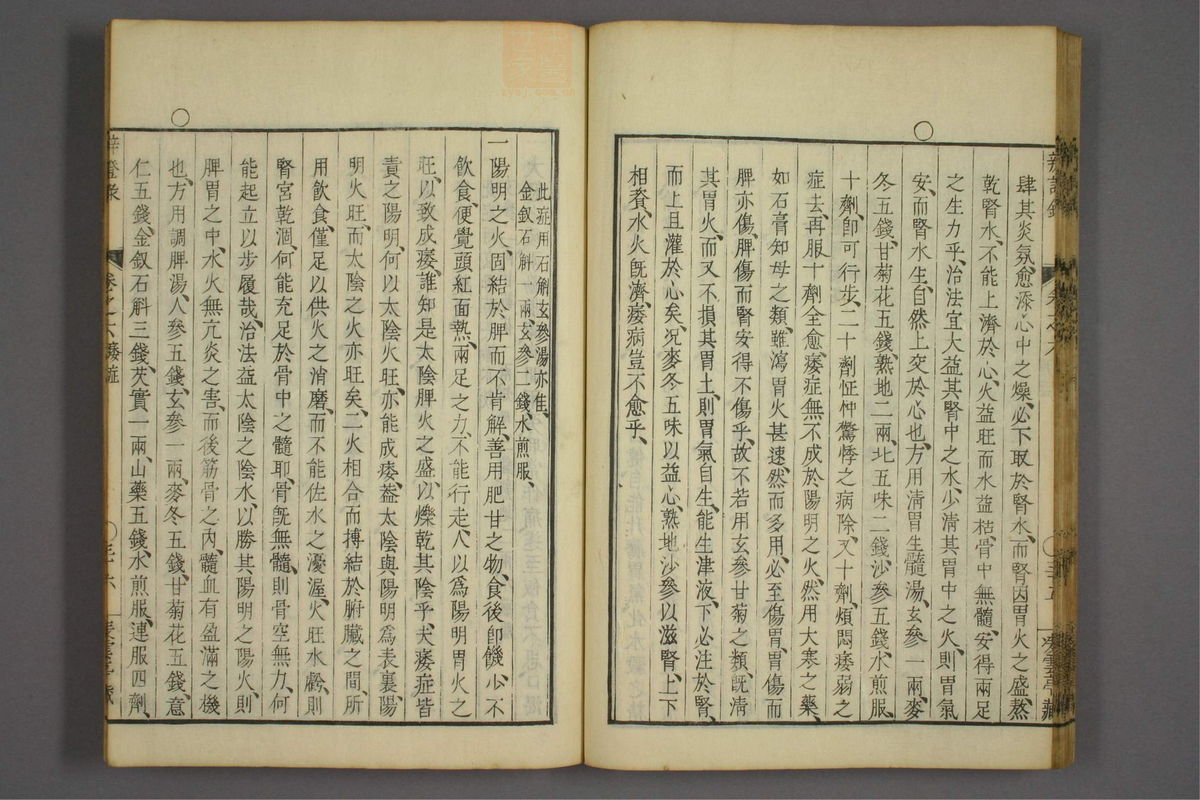 辨證錄
肆其炎氛愈添心中之燥、必下取於腎水、而腎因胃火之盛、熬
乾腎水、不能上濟於心、火益旺而水益枯、骨中無髓、安得兩足
之生力乎、治法宜大益其腎中之水、少淸其胃中之火、則胃氣
安、而腎水生、自然上交於心也、方用淸胃生髓湯、玄參一兩、麥
冬五錢、甘菊花五錢、熟地二兩、北五味二錢、沙參五錢、水煎服、
十劑、卽可行步、二十劑怔忡驚悸之病除、又十劑、煩悶痿弱之
症去、再服十劑全愈、痿症無不成於陽明之火、然用大寒之藥、
如石膏知母之類、雖瀉胃火甚速、然而多用、必至傷胃、胃傷而
脾亦傷、脾傷而腎安得不傷乎、故不若用玄參甘菊之類、旣淸
其胃火、而又不損其胃土、則胃氣自生、能生津液、下必注於腎、
而上且灌於心矣、況麥冬五味以益心、熟地沙參以滋腎、上下
相資、水火旣濟、痿病豈不愈乎、
此症用石斛玄參湯亦佳、
金釵石斛一兩、玄參二錢、水煎服、
一陽明之火、固結於脾而不肯解、善用肥甘之物、食後卽饑、少不
飲食、便覺頭紅面熱、兩足之力、不能行走、人以爲陽明胃火之
旺、以致成痿、誰知是太陰脾火之盛、以爍乾其陰乎、夫痿症皆
責之陽明、何以太陰火旺、亦能成痿、葢太陰與陽明爲表裏、陽
明火旺、而太陰之火亦旺矣、二火相合、而搏結於腑臟之間、所
用飲食、僅足以供火之消磨、而不能佐水之優渥、火旺水虧、則
腎宮乾涸、何能充足於骨中之髓耶、骨旣無髓、則骨空無力、何
能起立以步履哉、治法益太陰之陰水、以勝其陽明之陽火、則
脾胃之中、水火無亢炎之害、而後筋骨之內、髓血有盈滿之機
也、方用調脾湯、人參五錢、玄參一兩、麥冬五錢、甘菊花五錢、薏
仁五錢、金釵石斛三錢、芡實一兩、山藥五錢、水煎服、連服四劑、
卷之六痿症 三十六